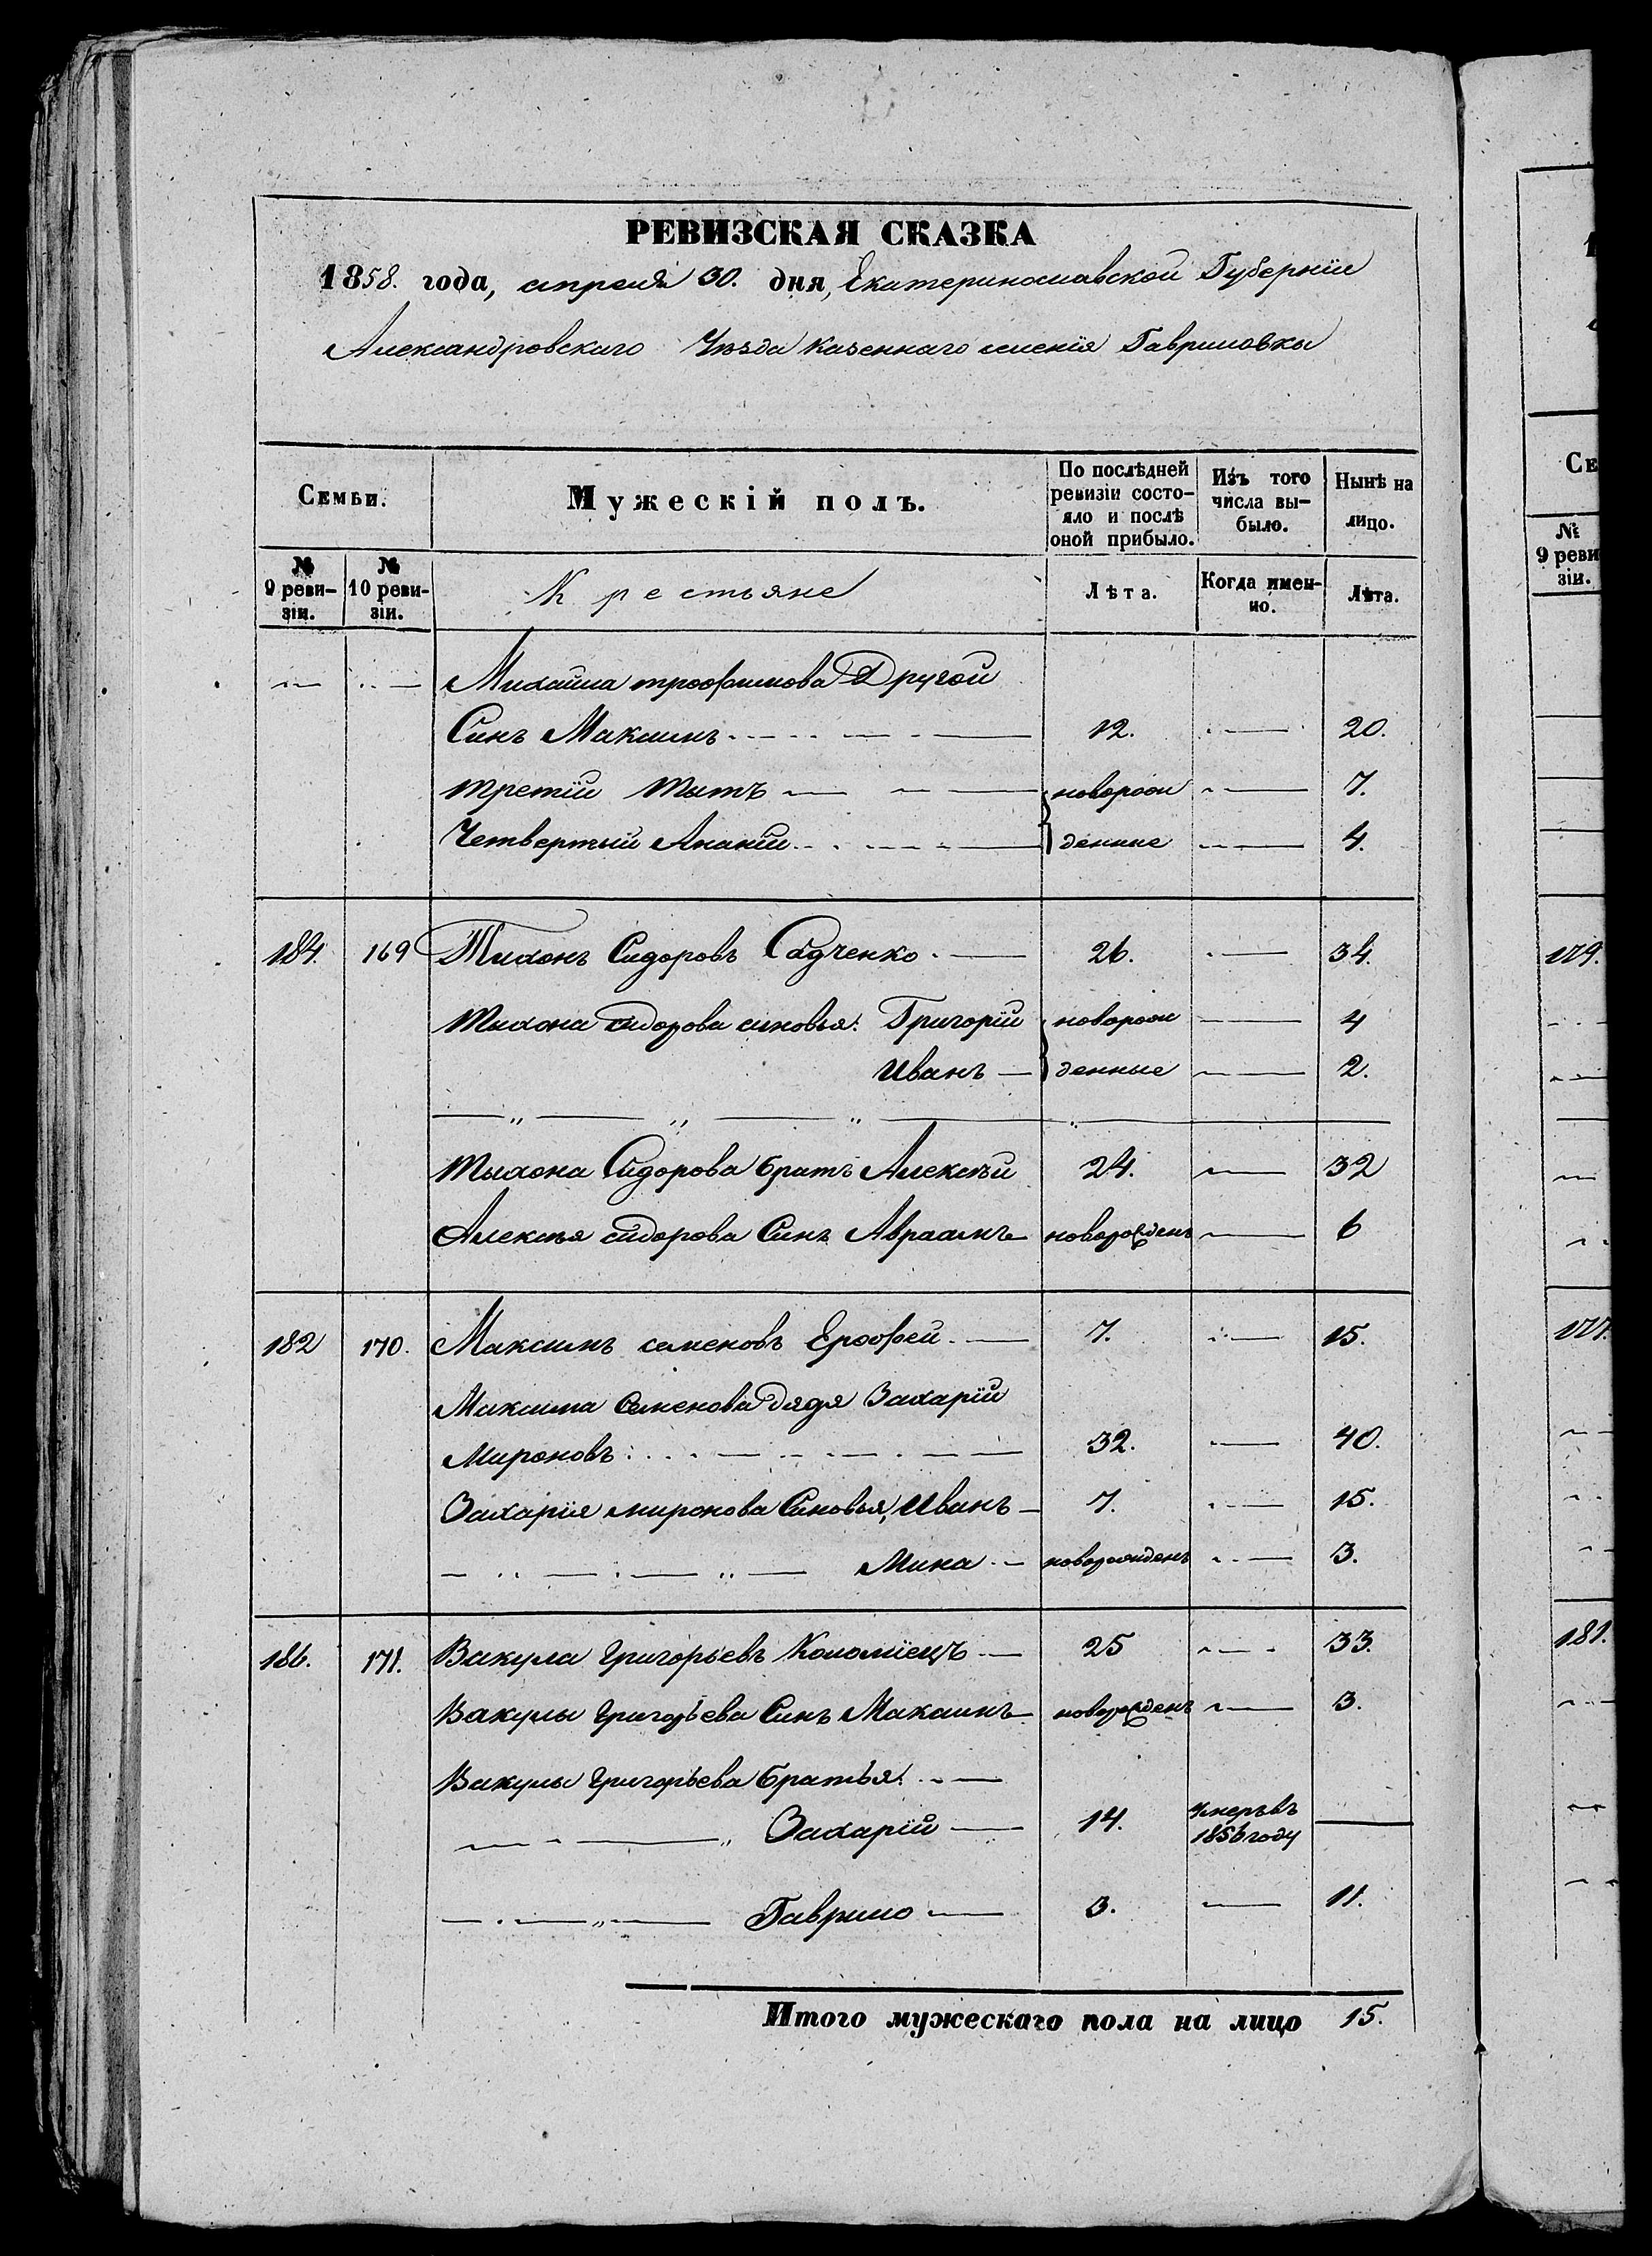 РЕВИЗСКАЯ СКАЗКА
1858. года, апреля 30. дня, Екатеринославской Губернiи
Александровскаго Уѣзда казеннаго селенiя Гавриловки
Семьи.
Мужескiй полъ.
По послѣдней ревизiи состо-яло и послѣ оной прибыло.
Изъ того числа вы-было.
Нынѣ на лицо.
№ 9 реви-зiи.
№ 10 реви-зiи.
Крестьяне
Лѣта.
Когда имен-но.
Лѣта.
Михайла трофимова Другой
Синъ Максимъ 12. 20.
третiй Титъ новорож 7.
Четвертый Ананiй денные 4.
184. 169 Тихонъ Сидоровъ Садченко 26. 34.
Тихона сидорова синовья: Григорiй новорож 4
Иванъ денные 2.
Тихона Сидорова братъ Алексѣй 24. 32
Алексѣя сидорова Синъ Авраамъ новорожденъ 6
182 170. Максимъ семеновъ Ерофей 7. 15.
Максима Семенова дядя Захарiй
Мироновъ: 32. 40.
Захарiя миронова Синовья, Иванъ 7. 15.
Мина новорожденъ 3.
186. 171. Вакула Григорьевъ Коломiецъ 25 33.
Вакулы Григорьева Синъ Максимъ новорожденъ 3.
Вакулы Григорьева братья:
Захарiй 14. Умеръ въ 1856 году
Гаврило 3. 11.
Итого мужескаго пола на лицо 15.
Се
№ 9 реви зiи.
179.
177.
181.